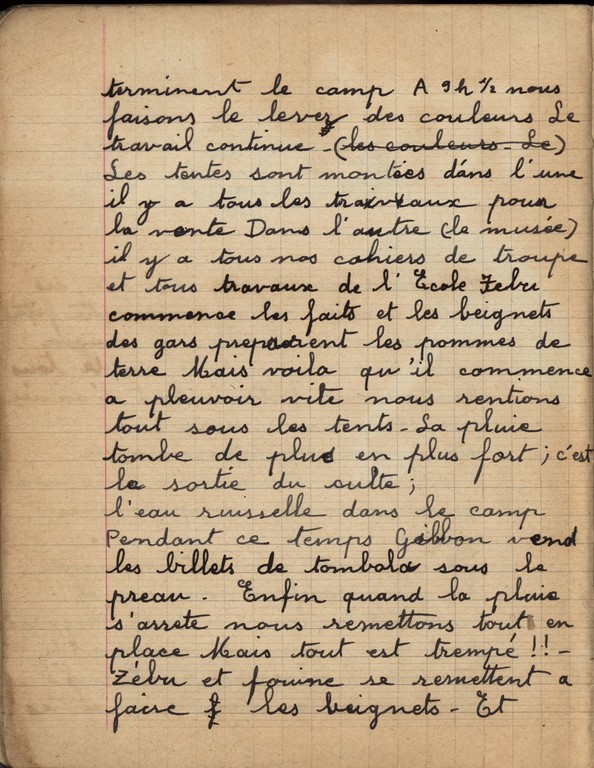 terminent le camp A 9h ½ nous
faisons le lever des couleurs Le
travail continue - (les couleurs. Le)
Les tentes sont montées dans l'une
il y a tous les travaux pour
la vente Dans l'autre (le musée)
il y a tous nos cahiers de troupe
et tous travaux de l'Ecole Zebu
commence les faits et les beignets
des gars preparent les pommes de
terre Mais voila qu'il commence
a pleuvoir vite nous rentions
tout sous les tents - La pluie
tombe de plus en plus fort ; c'est
la sortie du culte ;
l'eau ruisselle dans le camp
Pendant ce temps Gibbon vend
les billets de tombola sous le
preau . Enfin quand la pluie
s'arrete nous remettons tout en
place Mais tout est trempé !! -
Zébu et fouine se remettent a
faire les beignets - Et